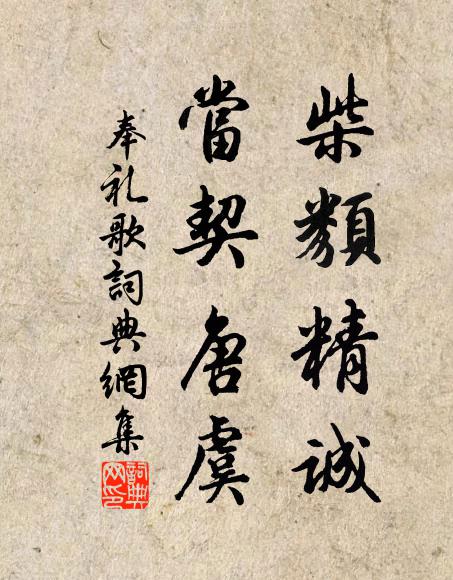 柴類精誠
當契唐虞
奉礼歌詞典網集
詞典网印